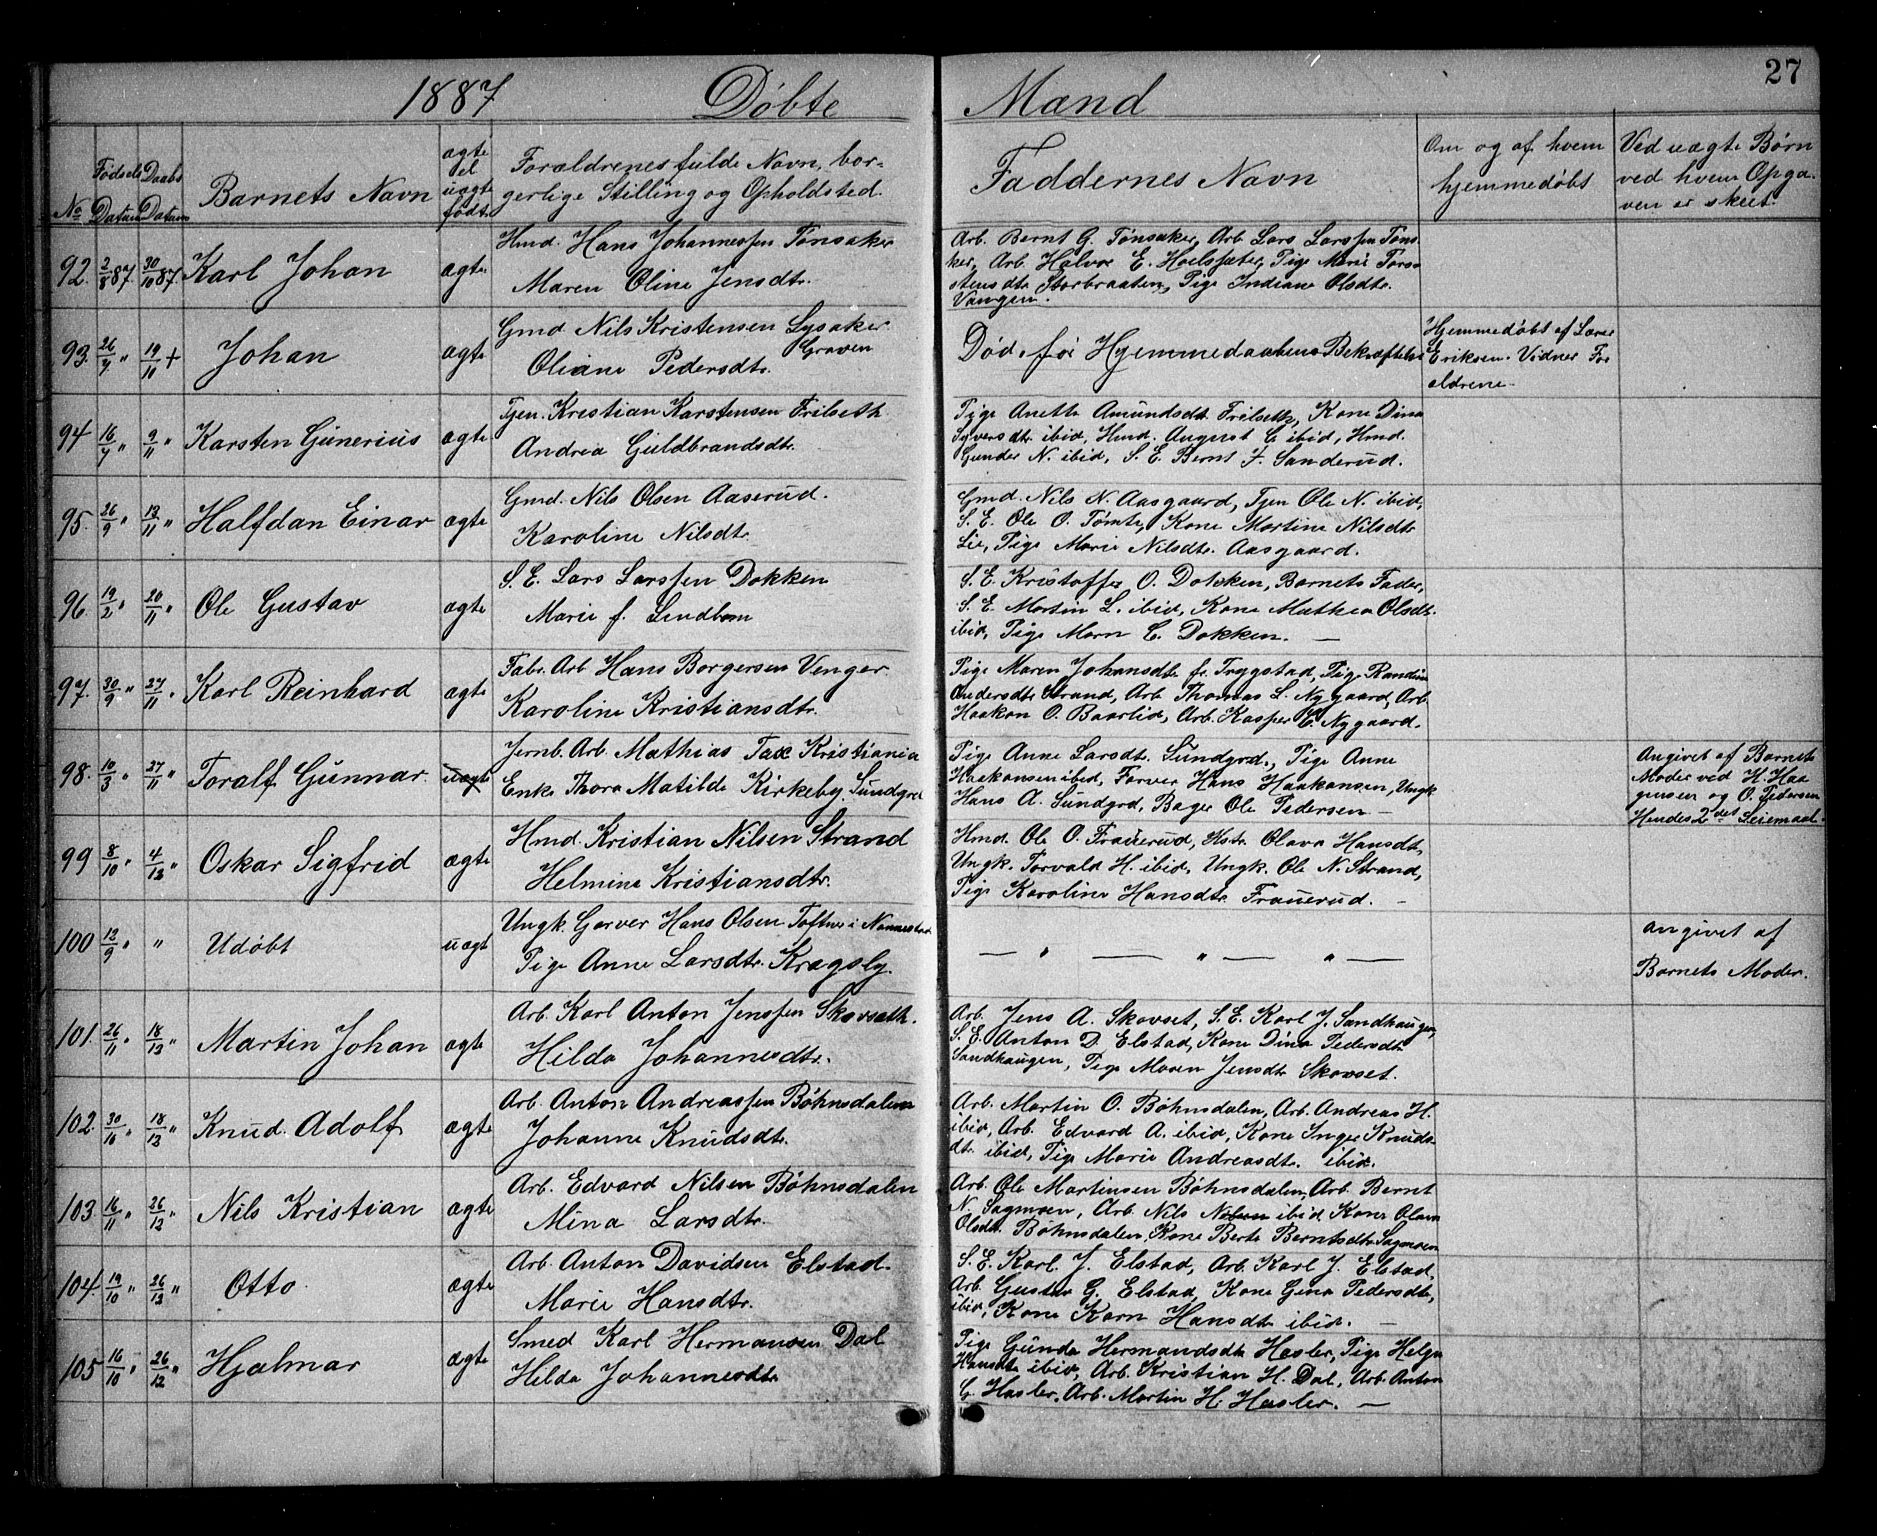 27
1887 Döbte Mænd
No
Fødsels Datum
Daabs Datum
Barnets Navn
ægte el uægte født.
Forældrenes fulde Navn, bor-
gerlige Stilling og Opholdsted.
Faddernes Navn
Om og af hvem
hjemmedøbt
Ved uægte Børn
ved hvem Opga-
ven er skeet.
92. 2/8 87. 30/10 87. Karl Johan ægte
Hmd. Hans Johannessen Tønsaker
Maren Oline Jensdtr.
Arb. Bernt G. Tønsaker, Arb. Lars Larssen Tøns
ker, Arb. Halvor E. Hoelsæter, Pige Marie Tors-
stensdtr Storbraaten, Pige Indiane Olsdtr.
Vangen.
93. 26/7 " 19/10 + Johan ægte
Gmd. Nils Kristensen Lysaker
Graven
Oliane Pedersdtr.
Død før Hjemmedaabens Bekræftelse
Hjemmedøbt af Lærer
Eriksen. Vidner For
ældrene.
94 16/7 " 9/11 " Karsten Gunerius ægte
Tjen. Kristian Karstensen Frilseth
Andrea Guldbrandsdtr.
Pige Anette Amundsdtr. Frilseth, Kone Dina
Syversdtr. ibid, Hmd. August C. ibid, Hmd.
Gunder N. ibid, S. E. Bernt F. Sanderud.
95. 26/9 " 13/11 " Halfdan Einar ægte
Gmd. Nils Olsen Aaserud.
Karoline Nilsdtr.
Gmd. Nils N. Aasgaard, Tjen Ole N. ibid,
S. E. Ole O. Tømte, Kone Martine Nilsdtr
Lie, Pige Marie Nilsdtr. Aasgaard.
96. 19/2 " 20/11 " Ole Gustav ægte
S. E. Lars Larssen Dokken
Marie f. Lindbom
S. E. Kristoffer O. Dokken, Barnets Fader,
S. E. Martin L. ibid, Kone Mathea Olsdt.
ibid, Pige Marn C. Dokken. —
97. 30/9 " 27/11 " Karl Reinhard ægte
Fabr. Arb Hans Borgersen Venger
Karoline Kristiansdtr.
Pige Maren Johansdtr fr. Trygstad, Pige Randine
Andersdtr Strand, Arb. Thomas L. Nygaard, Arb.
Haakon O. Baarlid, Arb. Kasper C. Nygaard.
98. 10/3 " 27/11 " Toralf Gunnar. uægte
Jernb. Arb. Mathias Fax Kristiania
Enke Thora Matilde Kirkeby. Sundgrd
Pige Anne Larsdtr. Sundgrd., Pige Anne
Haakansen ibid, Farver Hans Haakansen, Ungk
Hans A. Sundgrd, Bager Ole Pedersen —
Angivet af Barnets
Moder ved H. Haa
gensen og O. Pedersen
Hendes 2det Leiemaal.
99 8/10 " 4/12 " Oskar Sigfrid ægte
Hmd. Kristian Nilsen Strand
Helmine Kristiansdtr.
Hmd. Ole O. Frauerud, Hstr. Olava Hansdtr,
Ungk. Torvald H. ibid, Ungk. Ole N. Strand,
Pige Karoline Hansdtr. Frauerud. —
100 12/9 " " Udøbt uægt
Ungk. Garver Hans Olsen Toftnes i Nannestad
Pige Anne Larsdtr. Kragsly.
— " — " — " —
angivet af
Barnets Moder.
101. 26/11 " 18/12 " Martin Johan ægte
Arb. Karl Anton Jenssen Skovseth.
Hilda Johannesdtr.
Arb. Jens A. Skovset, S. E. Karl J. Sandhaugen,
S. E. Anton D. Elstad, Kone Dina Pedersdtr
Sandhaugen, Pige Maren Jensdtr Skovset.
102. 30/10 " 18/12 " Knud Adolf ægte
Arb. Anton Andreassen Bøhnsdalen
Johanne Knudsdtr.
Arb. Martin O. Bøhnsdalen, Arb. Andreas H.
ibid, Arb. Edvard A. ibid, Kone Inger Knuds
dtr. ibid, Pige Marie Andreasdtr. ibid.
103. 16/11 " 26/12 " Nils Kristian ægte
Arb. Edvard Nilsen Bøhnsdalen
Mina Larsdtr.
Arb. Ole Martinsen Bøhnsdalen, Arb. Bernt
N. Sagmoen, Arb. Nils Nilsen ibid, Kone Olava
Olsdtr. Bøhnsdalen, Kone Berte Berntsdtr Sagmoen
104. 19/10 " 26/12 " Otto. ægte
Arb. Anton Davidsen Elstad.
Marie Hansdtr.
S. E. Karl. J. Elstad, Arb. Karl J. Elstad,
Arb. Gustav G. Elstad, Kone Gina Pedersdtr,
ibid, Kone Karn Hansdtr ibid. —
105 16/10 " 26/12 " Hjalmar ægte
Smed Karl Hermansen Dal
Hilda Johannesdtr
Pige Gunda Hermandsdtr Hasler, Pige Helga
Hansdtr ibid, Arb. Kristian H. Dal, Arb. Anton
G. Hasler, Arb. Martin H. Hasler. —